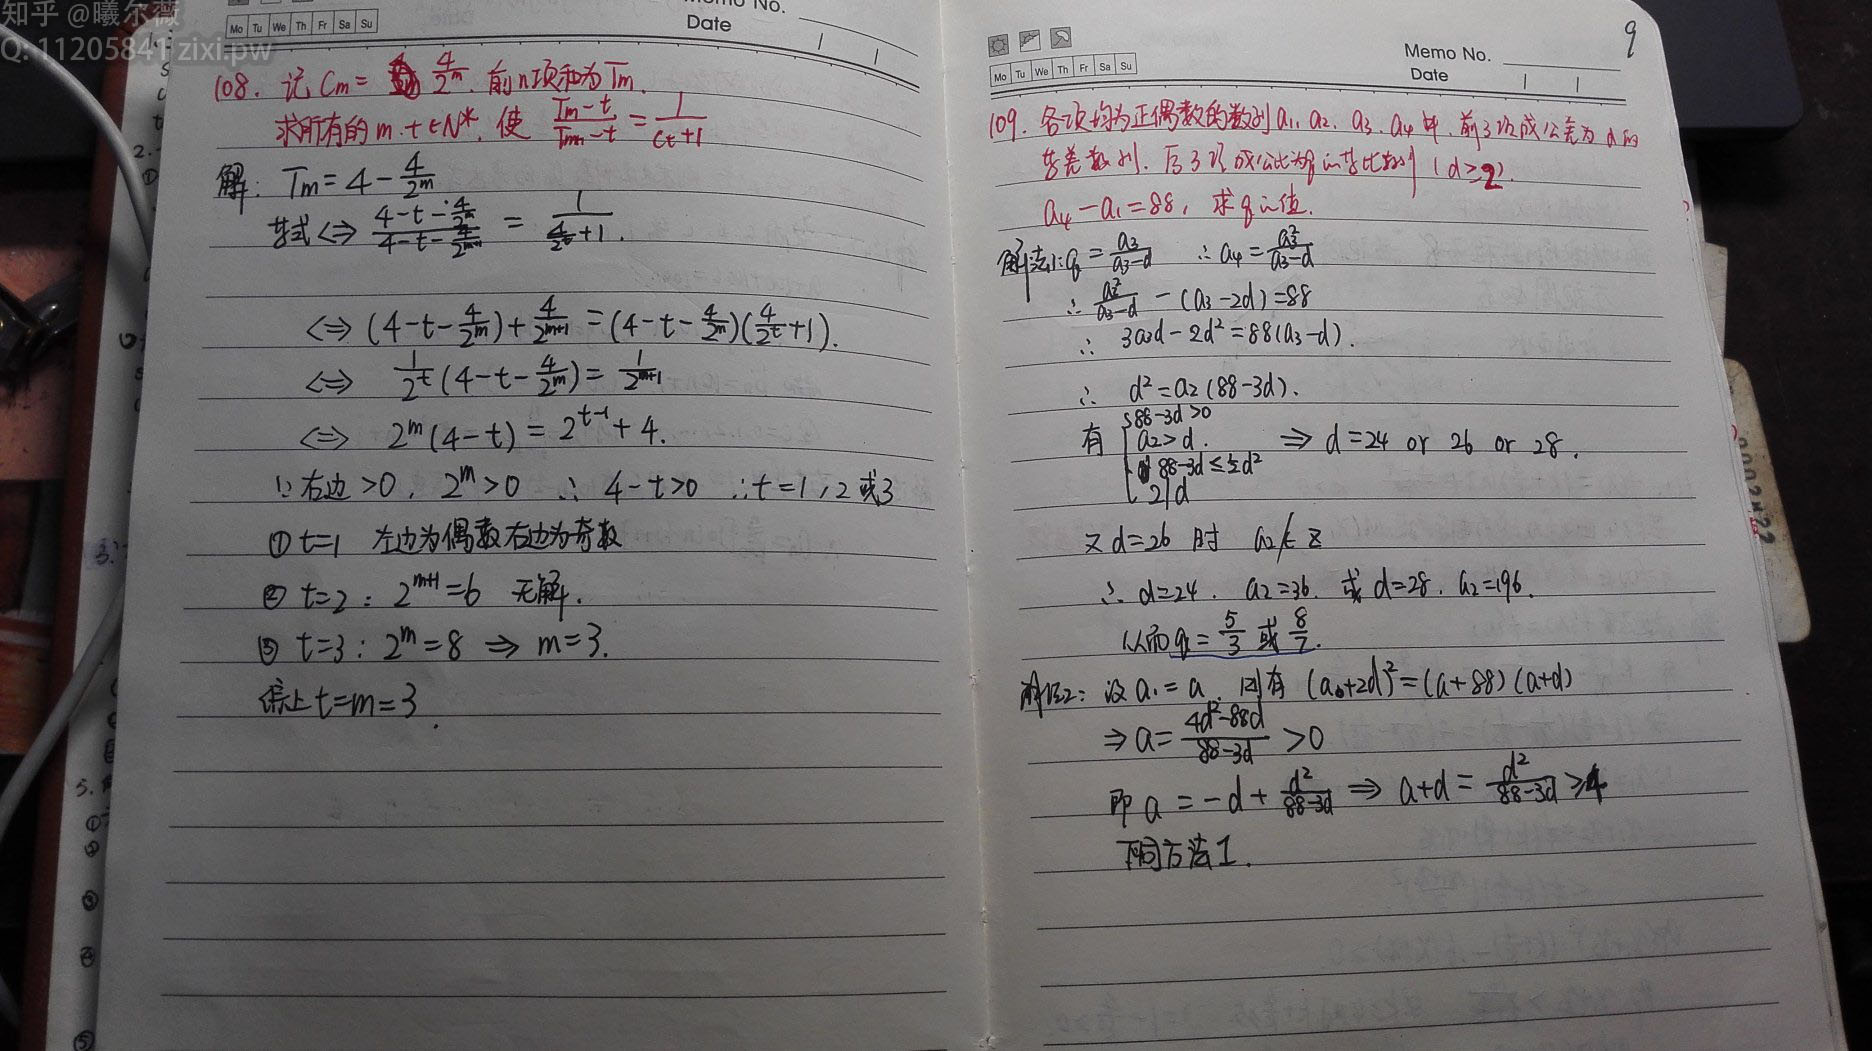 知乎 @曦尔薇
Q: 11205841 zixi.pw
Mo Tu We Th Fr Sa Su
Memo No.
Date
108. 记 Cm = 4/2^m. 前n项和为 Tm.
求所有的 m.t∈N*. 使 (Tm-t)/(Tm+1-t) = 1/(Ct+1)
解: Tm = 4 - 4/2^m
等式 <=> (4-t-4/2^m)/(4-t-4/2^(m+1)) = 1/(4/2^t+1).
<=> (4-t-4/2^m)+4/2^(m+1) = (4-t-4/2^m)(4/2^t+1).
<=> 1/2^t(4-t-4/2^m) = 1/2^(m+1)
<=> 2^m(4-t) = 2^(t-1)+4.
∵右边>0, 2^m>0 ∴ 4-t>0 ∴t=1,2或3
① t=1 左边为偶数右边为奇数
② t=2: 2^(m+1)=6 无解.
③ t=3: 2^m=8 ⇒ m=3.
综上 t=m=3.
9
Mo Tu We Th Fr Sa Su
Memo No.
Date
109. 各项均为正偶数的数列 a1. a2. a3. a4 中, 前3项成公差为 d 的
等差数列. 后3项成公比为q的等比数列 (d>2).
a4-a1=88, 求q的值.
解法1: q = a3/(a3-d) ∴ a4 = a3²/(a3-d)
∴ a3²/(a3-d) - (a3-2d) = 88
∴ 3a3d-2d²=88(a3-d).
∴ d²=a2(88-3d).
有 { 88-3d>0
a2>d. ⇒ d=24 or 26 or 28.
88-3d≤½d²
2|d
又 d=26 时 a2∉Z
∴ d=24. a2=36. 或 d=28. a2=196.
从而 q = 5/3 或 8/7.
解法2: 设 a1=a. 则有 (a+2d)²=(a+88)(a+d)
⇒ a = (4d²-88d)/(88-3d) >0
即 a = -d + d²/(88-3d) ⇒ a+d = d²/(88-3d) ≥4
下同方法1.